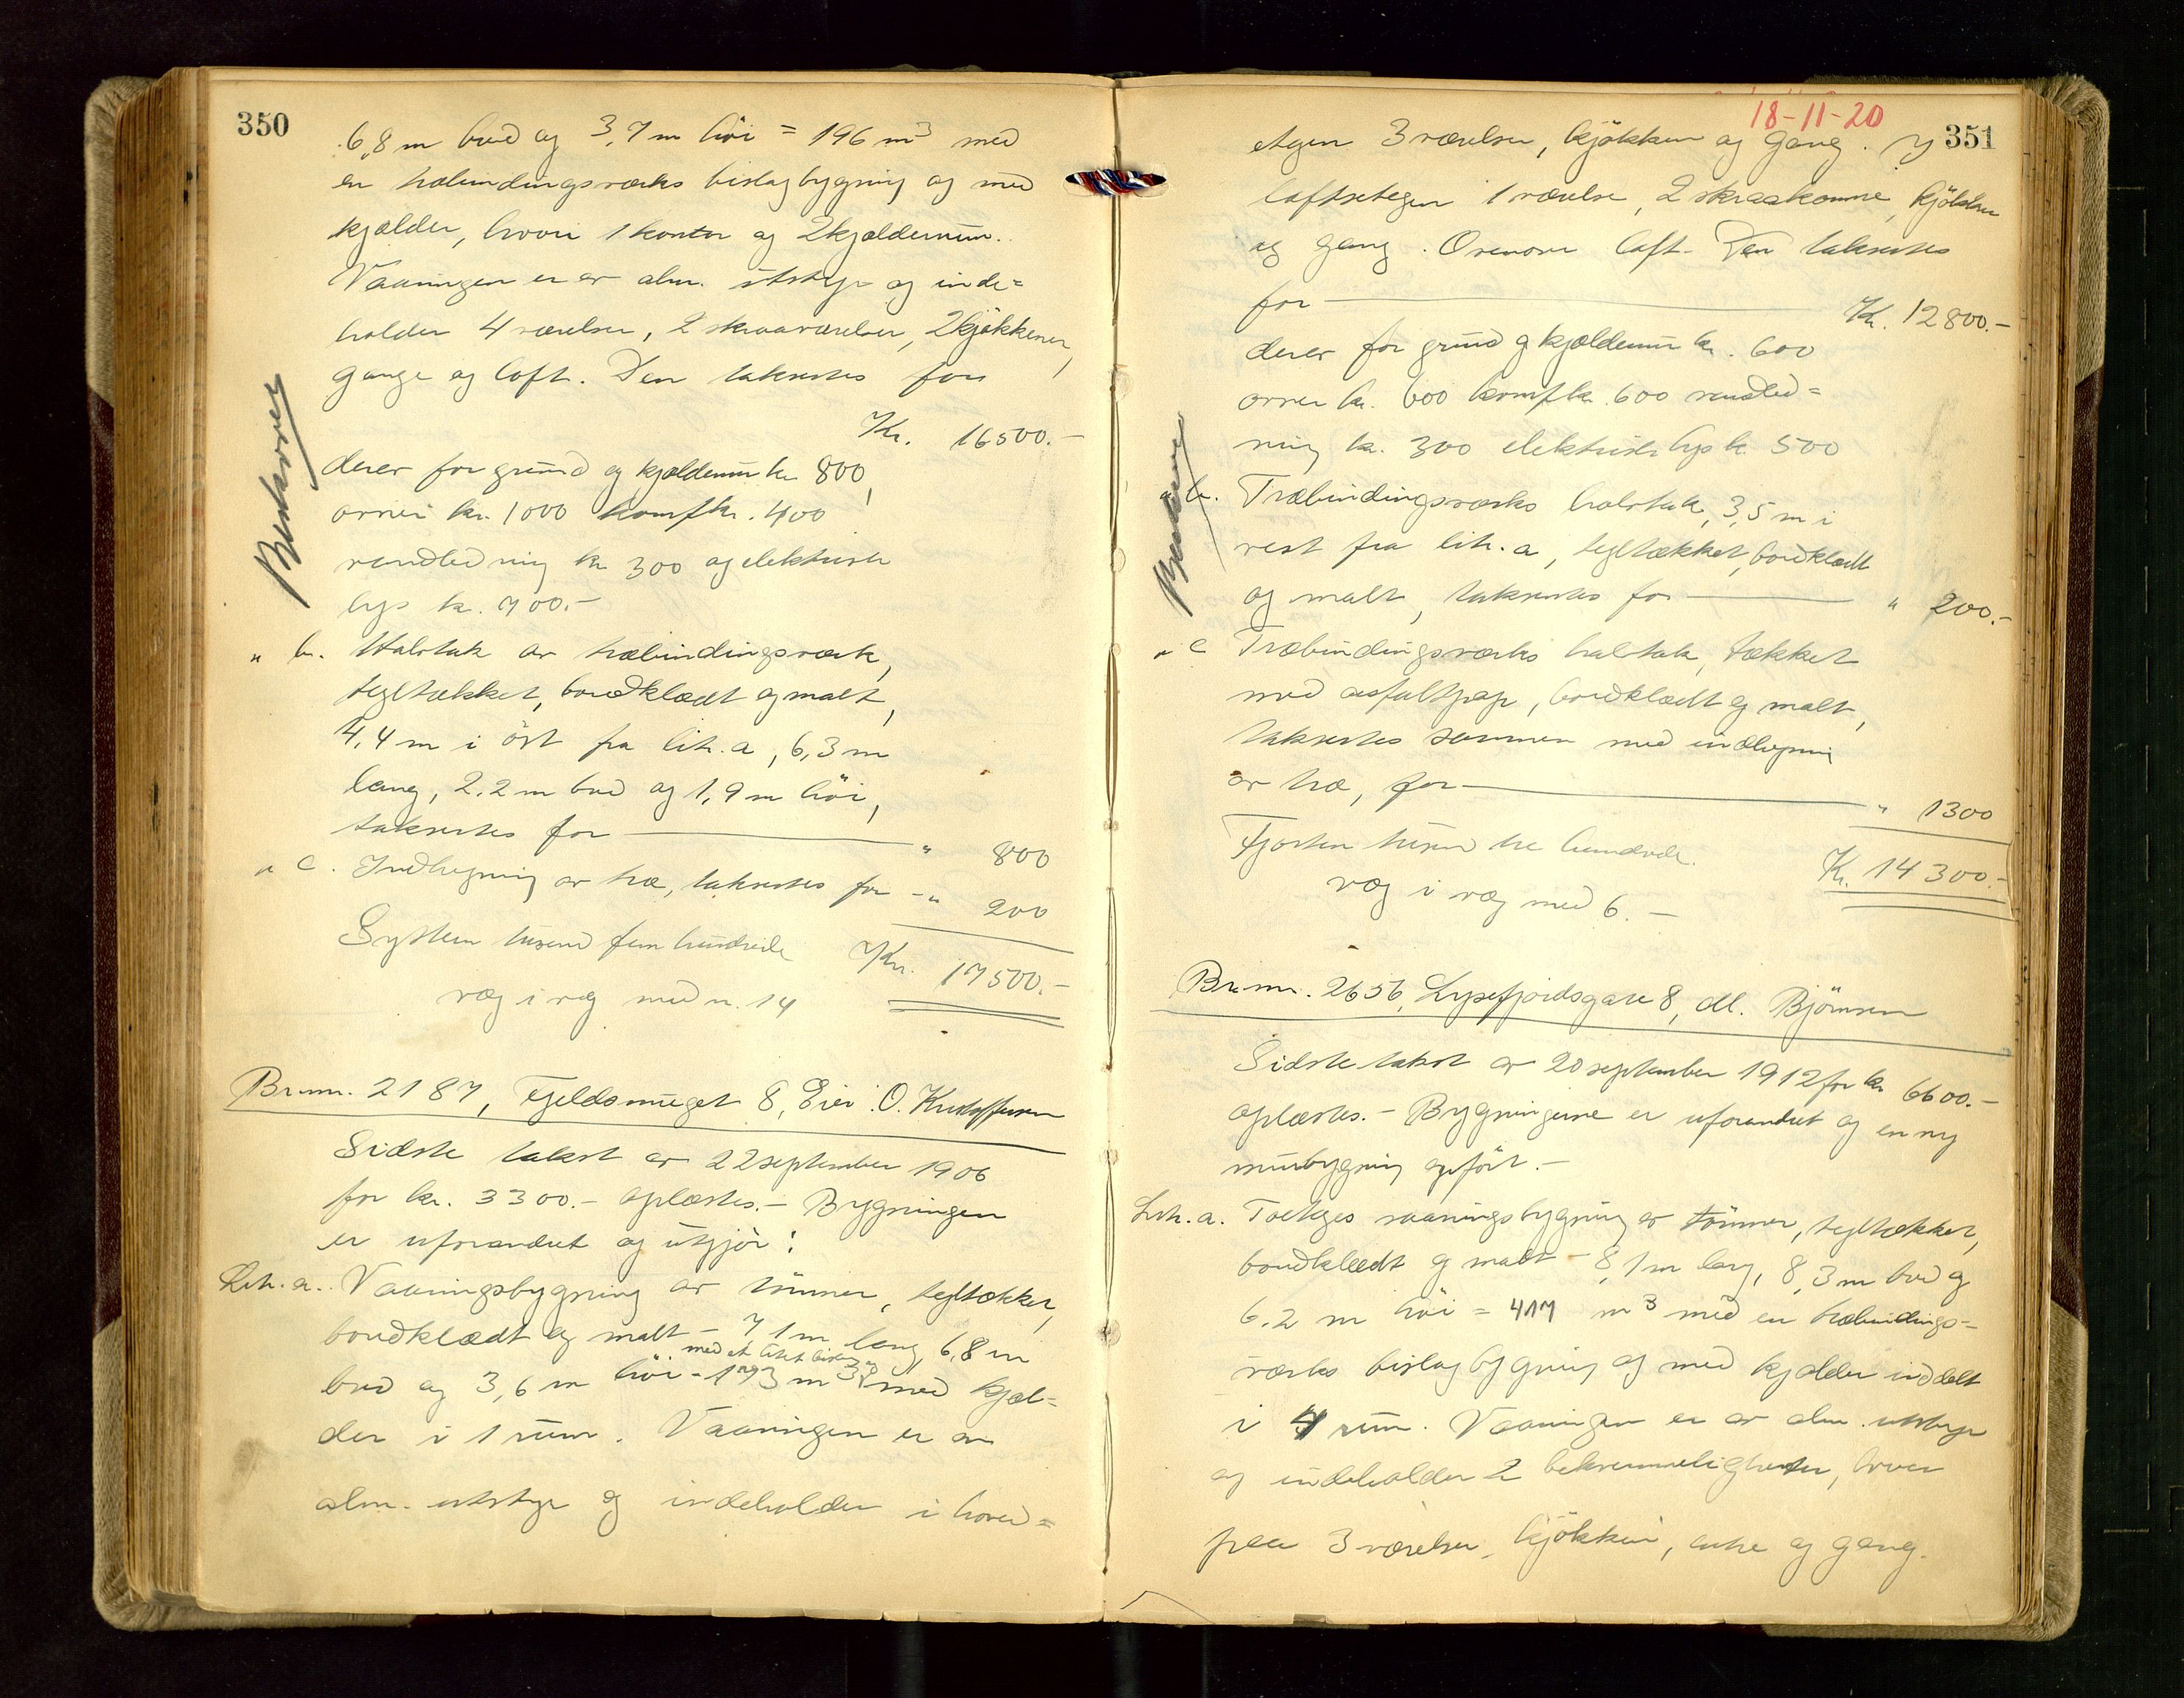 350
6,8 m bred og 3,7 m höi = 196 m³ med
en træbindingsværks bislagbygning og med
kjælder, hvori 1 kontor og 2 kjælderrum.
Vaaningen er av alm. utstyr og inde=
holder 4 værelser, 2 skraaværelser, 2 kjökkener,
gange og loft. Den takseres for
Kr. 16500.-
derav for grund og kjældermur kr 800,
ovner kr. 1000 komf kr. 400
vandledning kr 300 og elektrisk
lys kr. 700.-
" b. Halvtak av træbindingsværk,
tegltækket, bordklædt og malt,
4,4 m i öst fra litr. a, 6,3 m
lang, 2,2 m bred og 1,9 m höi,
takseres for " 800
" c. Indhegning av træ, takseres for - " 200
Sytten tusend fem hundrede Kr. 17500.-
væg i væg med n. 14
Br.nr. 2187, Fjeldsmuget 8, Eier: O. Kristoffersen
Sidste takst av 22 september 1906
for kr. 3300.- oplæstes.- Bygningen
er uforandret og utgjör:
Litr. a. Vaaningsbygning av tömmer, tegltækket,
bordklædt og malt - 7,1 m lang, 6,8 m
med et litet bislag og
bred og 3,6 m höi = 173 m³ med kjæl=
der i 1 rum. Vaaningen er av
alm. utstyr og indeholder i hoved=
18-11-20
351
etagen 3 værelser, kjökken og gang. I
loftsetagen 1 værelse, 2 skraakamre, kjökken
og gang. Ovenover loft. Den takseres
for Kr. 12800.-
derav for grund og kjældermur kr. 600
ovner kr. 600 komf kr. 600 vandled=
ning kr. 300 elektrisk lys kr. 500
" b. Træbindingsværks halvtak, 3,5 m i
vest fra litr. a, tegltækket, bordklædt
og malt, takseres for " 200.-
" c Træbindingsværks halvtak, tækket
med asfaltpap, bordklædt og malt,
takseres sammen med indhegning
av træ, for " 1300
Fjorten tusen tre hundrede. Kr. 14300.-
væg i væg med 6.-
Br.nr. 2656, Lysefjordsgate 8, dl. Björnsen
Sidste takst av 20 september 1912 for kr 6600.-
oplæstes.- Bygningerne er uforandret og en ny
murbygning opfört.-
Litr. a. Toetages vaaningsbygning av tömmer, tegltækket,
bordklædt og malt - 8,1 m lang, 8,3 m bred og
6.2 m höi = 417 m³ med en træbindings=
værks bislagbygning og med kjælder inddelt
i 4 rum. Vaaningen er av alm. utstyr
og indeholder 2 bekvemmeligheter, hver
paa 3 værelser, kjökken, entre og gang.